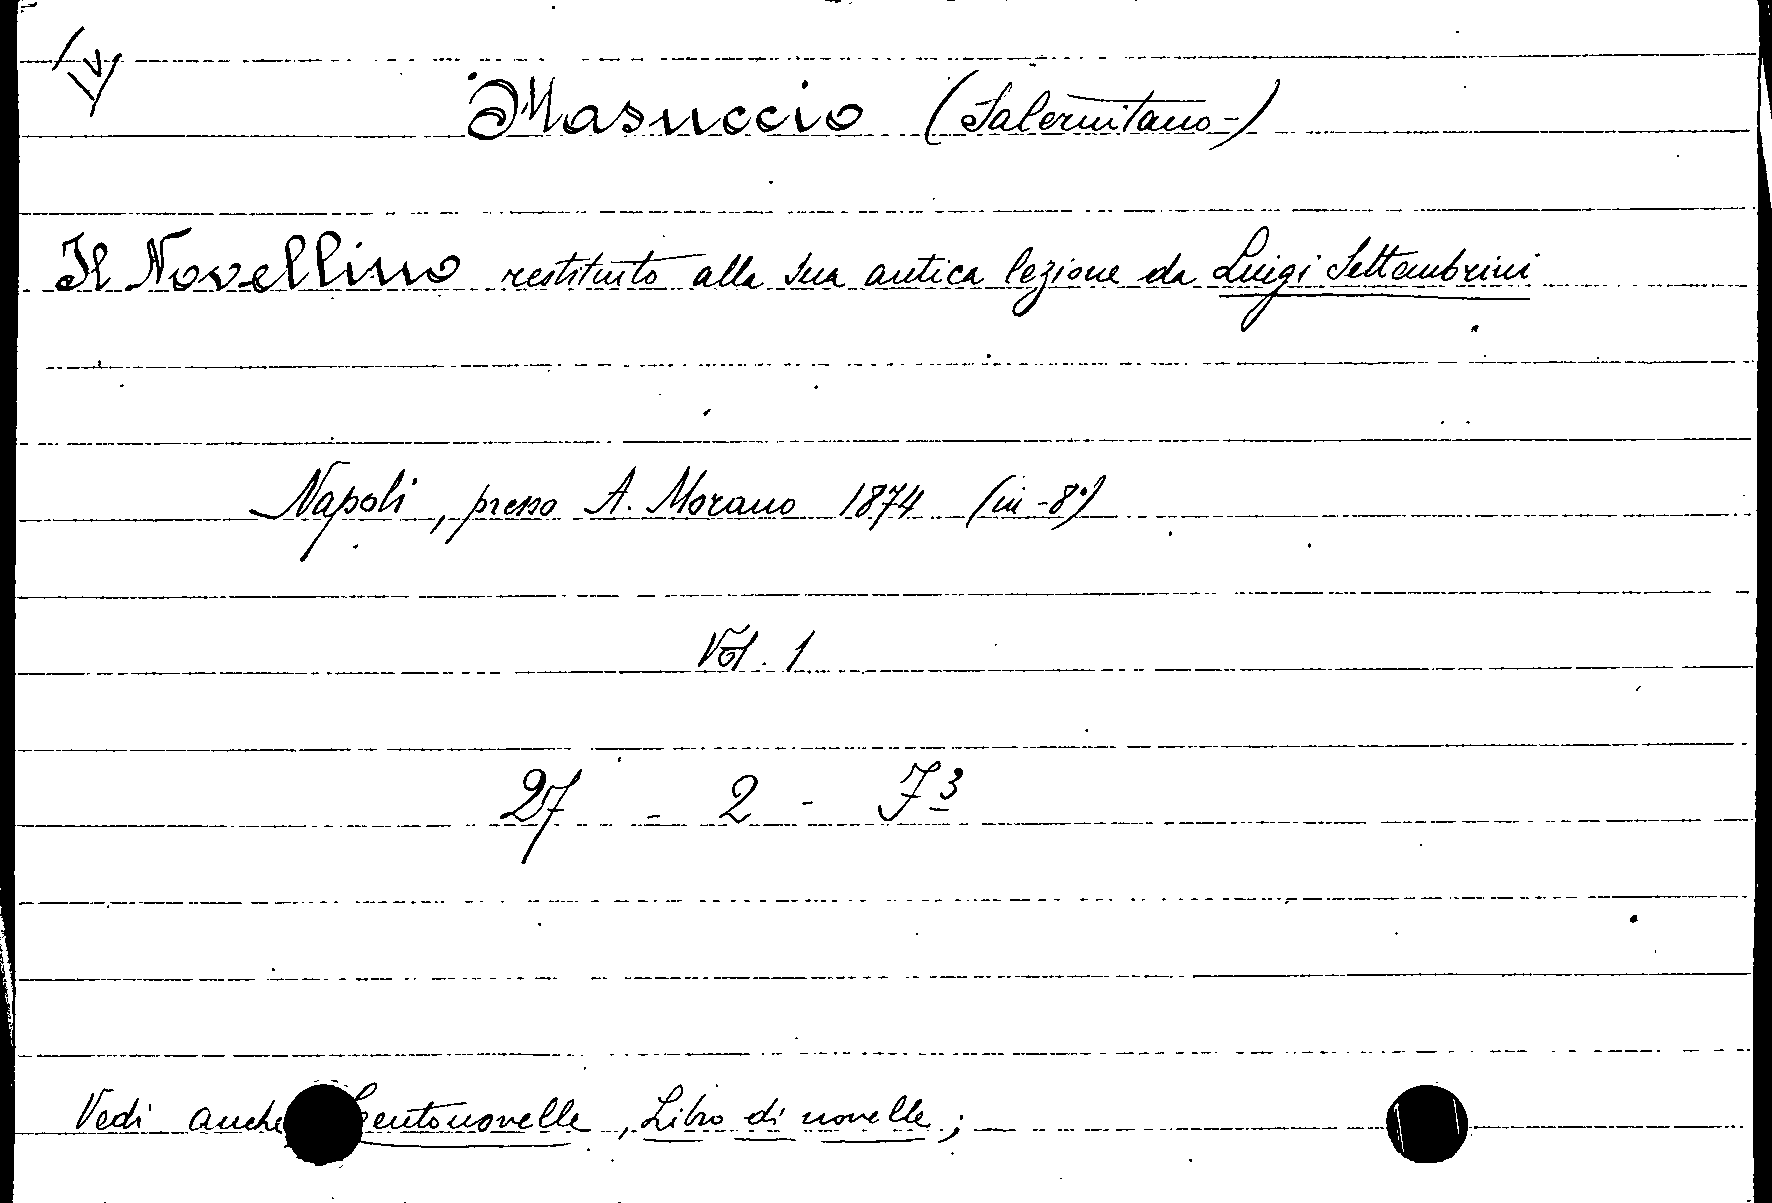 IV
Masuccio (Salernitano-)
Il Novellino restituito alla sua antica lezione da Luigi Settembrini
Napoli, presso A. Morano 1874 (in-8°)
Vol. 1
27 - 2 - I 3
Vedi anche Centonovelle, Libro di novelle;